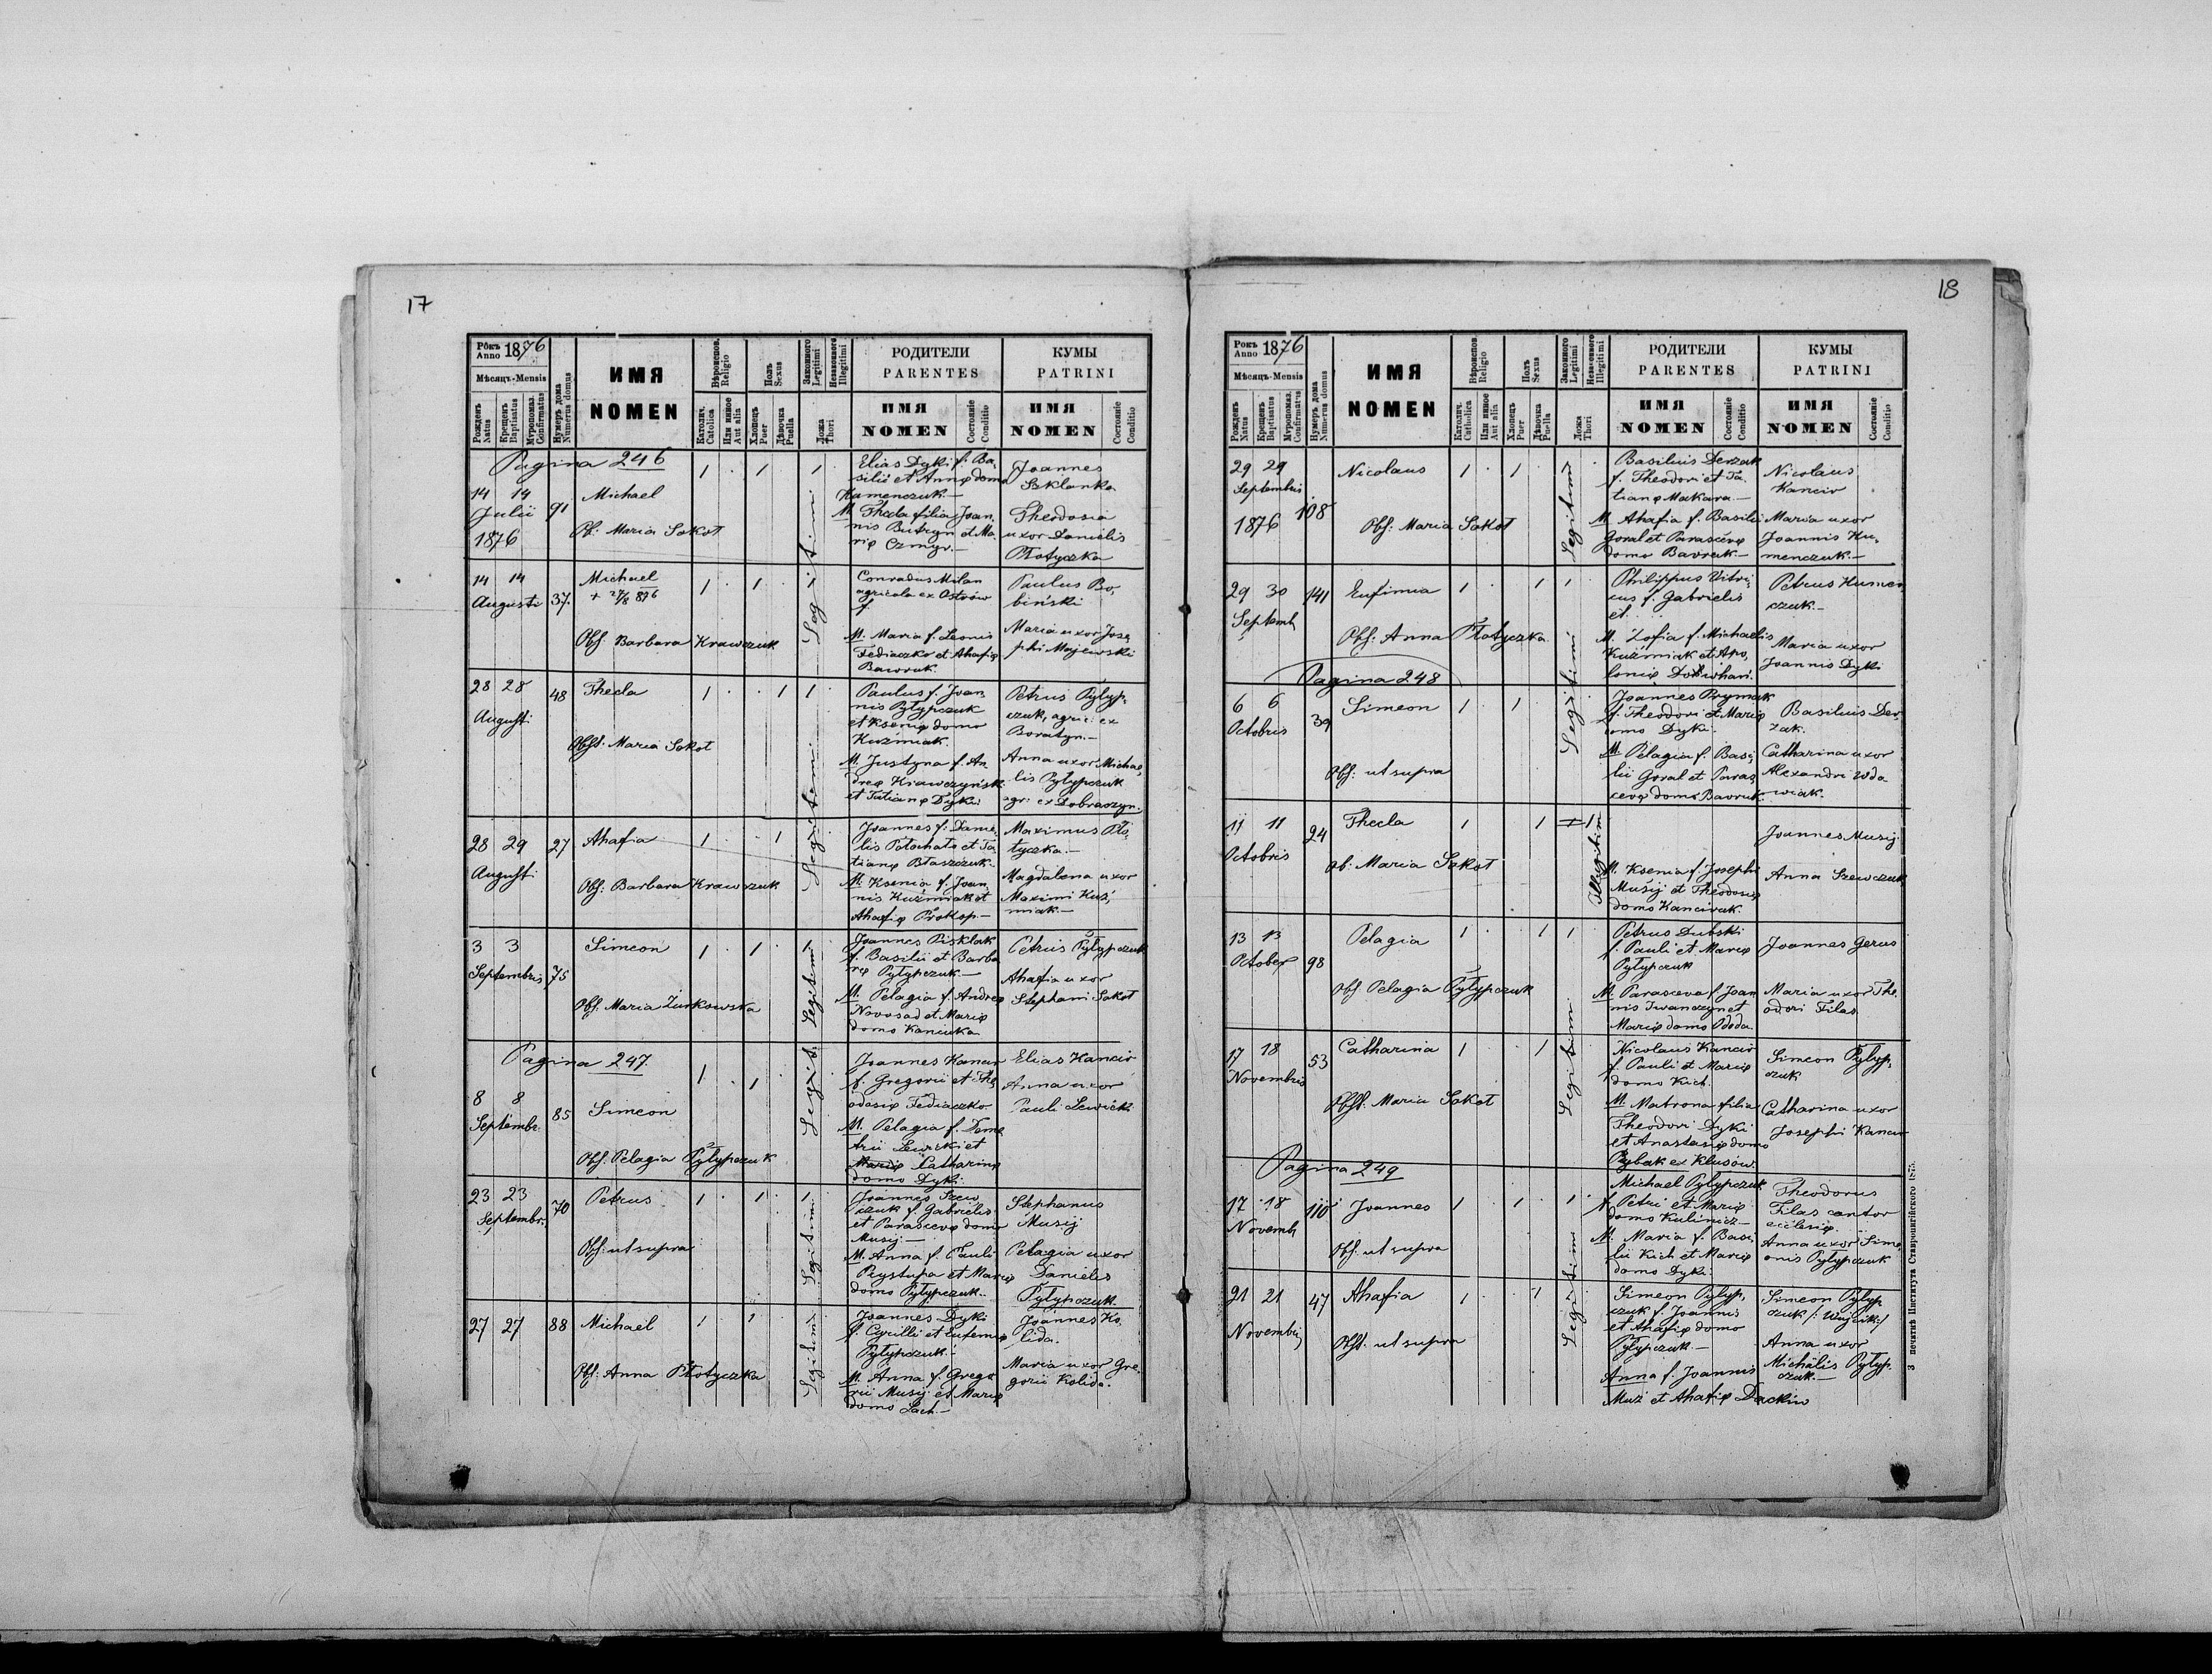 17
Рôкъ Anno 1876
Мѣсяцъ-Mensis
Рожденъ Natus
Крещенъ Baptisatus
Мѵропомаз. Confirmatus
Нумеръ дома Numerus domus
ИМЯ
NOMEN
Вѣроиспов. Religio
Католич. Catolica
Или инное Aut alia
Полъ Sexus
Хлопецъ Puer
Дѣвочка Puella
Законного Legitimi
Незаконного Illegitimi
Ложа Thori
РОДИТЕЛИ
PARENTES
ИМЯ
NOMEN
Состояніе Conditio
КУМЫ
PATRINI
ИМЯ
NOMEN
Состояніе Conditio
Pagina 246
14 14
Julii
1876
91
Michael
Ob: Maria Sokoł
1 . 1 1
Legitimi
Elias Dyki f. Ba-
silii et Annę domo
Kamenczuk.—
M. Thecla filia Joan-
nis Butryn et Ma-
rię Czmyr.—
Joannes
Szklanka
Theodosia
uxor Danielis
Płotyczka
14 14
Augusti
37.
Michael
+ 27/8 876
Obs. Barbara Krawczuk
1 . 1 . 1
Conradus Milan
agricola ex Ostrów
f.
M. Maria f. Leonis
Fediaczko et Ahafię
Bawruk.
Paulus Bo-
biński
Maria uxor Jose-
phi Majewski
28 28
Augusti
48
Thecla
Obst. Maria Sokoł
1 . . 1 1
Legitimi
Paulus f. Joan-
nis Pyłypczuk
et Ksenię domo
Kuźmiak.
M. Justyna f. An-
dreę Krawczyńsk.
et Tatianę Dyki
Petrus Pyłyp-
czuk, agri: ex
Boratyn.—
Anna uxor Michae-
lis Pyłypczuk
agr: ex Dobraczyn.
28 29
Augusti
27
Ahafia
Obs. Barbara Krawczuk
1 . 1
Joannes f. Danie-
lis Potochata et Ta-
tianę Błaszczuk.
M. Ksenia f. Joan-
nis Kuźmiak et
Ahafię Prokop.—
Maximus Pło-
tyczka.—
Magdalena uxor
Maximi Kuź-
miak.—
3 3
Septembris
75
Simeon
Obs. Maria Żurkowska
1 . 1 . 1
Legitimi
Joannes Pisklak
f. Basilii et Barba-
rę Pyłypczuk.—
M. Pelagia f. Andreę
Nowosad et Marię
domo Kanciuka
Petrus Pyłypczuk
Ahafia uxor
Stephani Sokoł
Pagina 247.
8 8
Septembr.
85
Simeon
Obs. Pelagia Pyłypczuk
1 . 1
Legiti
Joannes Kancir
f. Gregorii et The-
odosię Fediaczko.
M. Pelagia f. Deme-
trii Lewicki et
Marię Catharinę
domo Dyki.
Elias Kancir
Anna uxor
Pauli Lewicki
23 23
Septembr.
70
Petrus
Obs: ut supra
1 . 1 . 1
Legitimi
Joannes Szew-
czuk f. Gabrielis
et Parascevę domo
Musij.—
M. Anna f. Pauli
Prystupa et Marię
domo Pyłypczuk.
Stephanus
Musij
Pelagia uxor
Danielis
Pyłypczuk.
27 27
88
Michael
Obs: Anna Płotyczka
1 . 1
Legitimi
Joannes Dyki
f. Cyrilli et Eufemię
Pyłypczuk.—
M. Anna f. Grego-
rii Musij et Marię
domo Lach.—
Joannes Ko-
lida.
Maria uxor Gre-
gorii Kolida.
18
Рôкъ Anno 1876
Мѣсяцъ-Mensis
Рожденъ Natus
Крещенъ Baptisatus
Мѵропомаз. Confirmatus
Нумеръ дома Numerus domus
ИМЯ
NOMEN
Вѣроиспов. Religio
Католич. Catholica
Или инное Aut alia
Полъ Sexus
Хлопецъ Puer
Дѣвочка Puella
Законного Legitimi
Незаконного Illegitimi
Ложа Thori
РОДИТЕЛИ
PARENTES
ИМЯ
NOMEN
Состояніе Conditio
КУМЫ
PATRINI
ИМЯ
NOMEN
Состояніе Conditio
29 29
Septembris
1876
108
Nicolaus
Obs: Maria Sokoł
1 . 1 .
Legitimi
Basilius Derzak
f. Theodori et Ta-
tianę Makara.—
M. Ahafia f. Basilii
Goral et Parascevę
domo Bavruk.—
Nicolaus
Kancir
Maria uxor
Joannis Hu-
menczuk.—
29 30
Septemb.
141
Eufimia
Obs: Anna Płotyczka.
1 . 1 1
Philippus Vitri-
cus f. Gabrielis
et. . . .
M. Zofia f. Michaelis
Kuźmiak et Apo-
Petrus Humen-
czuk.—
Maria uxor
Joannis Dyki
Pagina 248
6 6
Octobris
39
Simeon
Obs: ut supra
1 . 1 .
Legitimi
Joannes Prymak
f. Theodori et Marię
domo Dyki.
M. Pelagia f. Basi-
lii Goral et Paras-
cevę domo Bavruk.
Basilius Der-
zak.
Catharina uxor
Alexandri Wdo-
wiak.
11 11
Octobris
24
Thecla
Ob: Maria Sokoł
1 1 1
Illegitim
M. Ksenia f. Josephi
Musij et Theodosię
domo Kancirak.
Joannes Musij.
Anna Szewczuk
13 13
October
98
Pelagia
Obs. Pelagia Pyłypczuk
1 . 1 1
Petrus Dubski
f. Pauli et Marię
Pyłypczuk
M. Parasceva f. Joan-
nis Iwanczyn et
Marię domo Ododa.
Joannes Gerus
Maria uxor The-
odori Filas.
17 18
Novembris
53
Catharina
Obst. Maria Sokoł
1 . 1
Legitimi
Nicolaus Kancir
f. Pauli et Marię
domo Kich.
M. Matrona filia
Theodori Dyki
et Anastasię domo
Rybak ex Klusów.
Simeon Pyłyp-
czuk
Catharina uxor
Josephi Kancir
Pagina 249
17 18
Novemb.
110
Joannes
Obs: ut supra
1 . 1 . 1
Michael Pyłypczuk
f. Petri et Marię
domo Kulinicz—
M. Maria f. Basi-
lii Kich et Marię
domo Dyki.
Theodorus
Filas cantor
ecclesię.
Anna uxor Sime-
onis Pyłypczuk
21 21
Novembris
47
Ahafia
Obst. ut supra
1 . . 1 .
Legitimi
Simeon Pyłyp-
czuk f. Joannis
et Ahafię domo
Pyłypczuk.—
Anna f. Joannis
Muż et Ahafię Dackiw
Simeon Pyłyp-
czuk /: Wujcik:/
Anna uxor
Michälis Pyłyp-
czuk.—
3 печатнѣ Института Ставропигійского 1875.